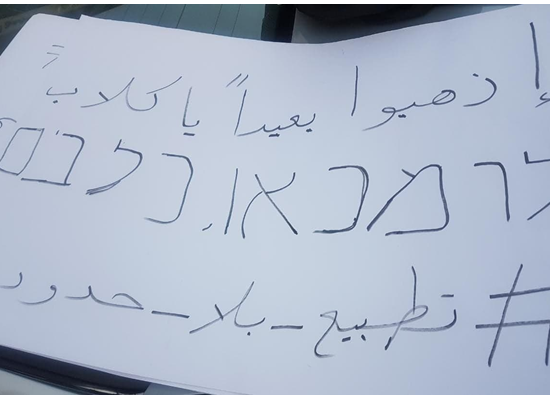 إذهبوا بعيداً يا كلاب
מכאן, כלבים
#تطبيع_بلا_حدود